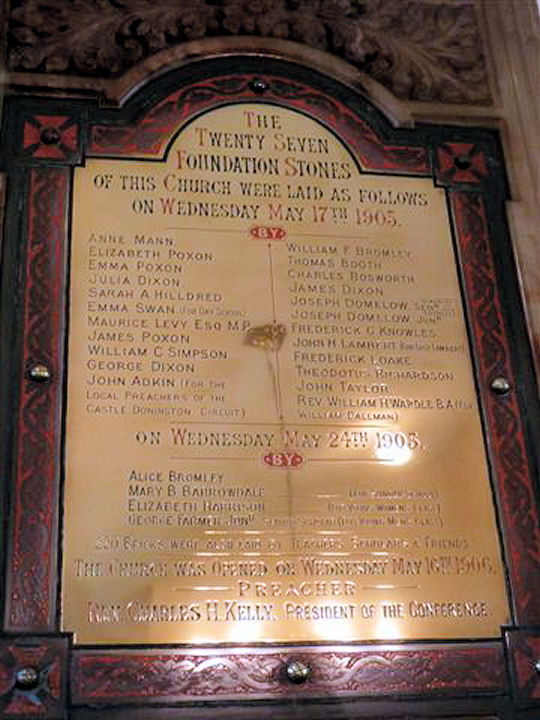 The
Twenty Seven
Foundation Stones
of this Church were laid as follows
on Wednesday May 17th 1905.
By
Anne Mann
Elizabeth Poxon
Emma Poxon
Julia Dixon
Sarah A Hilldred
Emma Swan (For Day School)
Maurice Levy Esq M.P.
James Poxon
William C Simpson
George Dixon
John Adkin (For the
Local Preachers of the
Castle Donington Circuit)
William F Bromley
Thomas Booth
Charles Bosworth
James Dixon
Joseph Domelow Senr
Joseph Domelow Junr
Frederick C Knowles
John H Lambert
Frederick Loake
Theodotus Richardson
John Taylor
Rev. William H. Wardle B.A. (For
William Dallman)
on Wednesday May 24th 1905.
By
Alice Bromley
Mary B Barrowdale (For Sunday School)
Elizabeth Harrison (For Young Womens Class)
George Farmer Junr (For Young Mens Class)
220 Bricks were also laid by Teachers Scholars & Friends
The Church was opened on Wednesday May 16th 1906.
Preacher
Rev. Charles H. Kelly, President of the Conference.